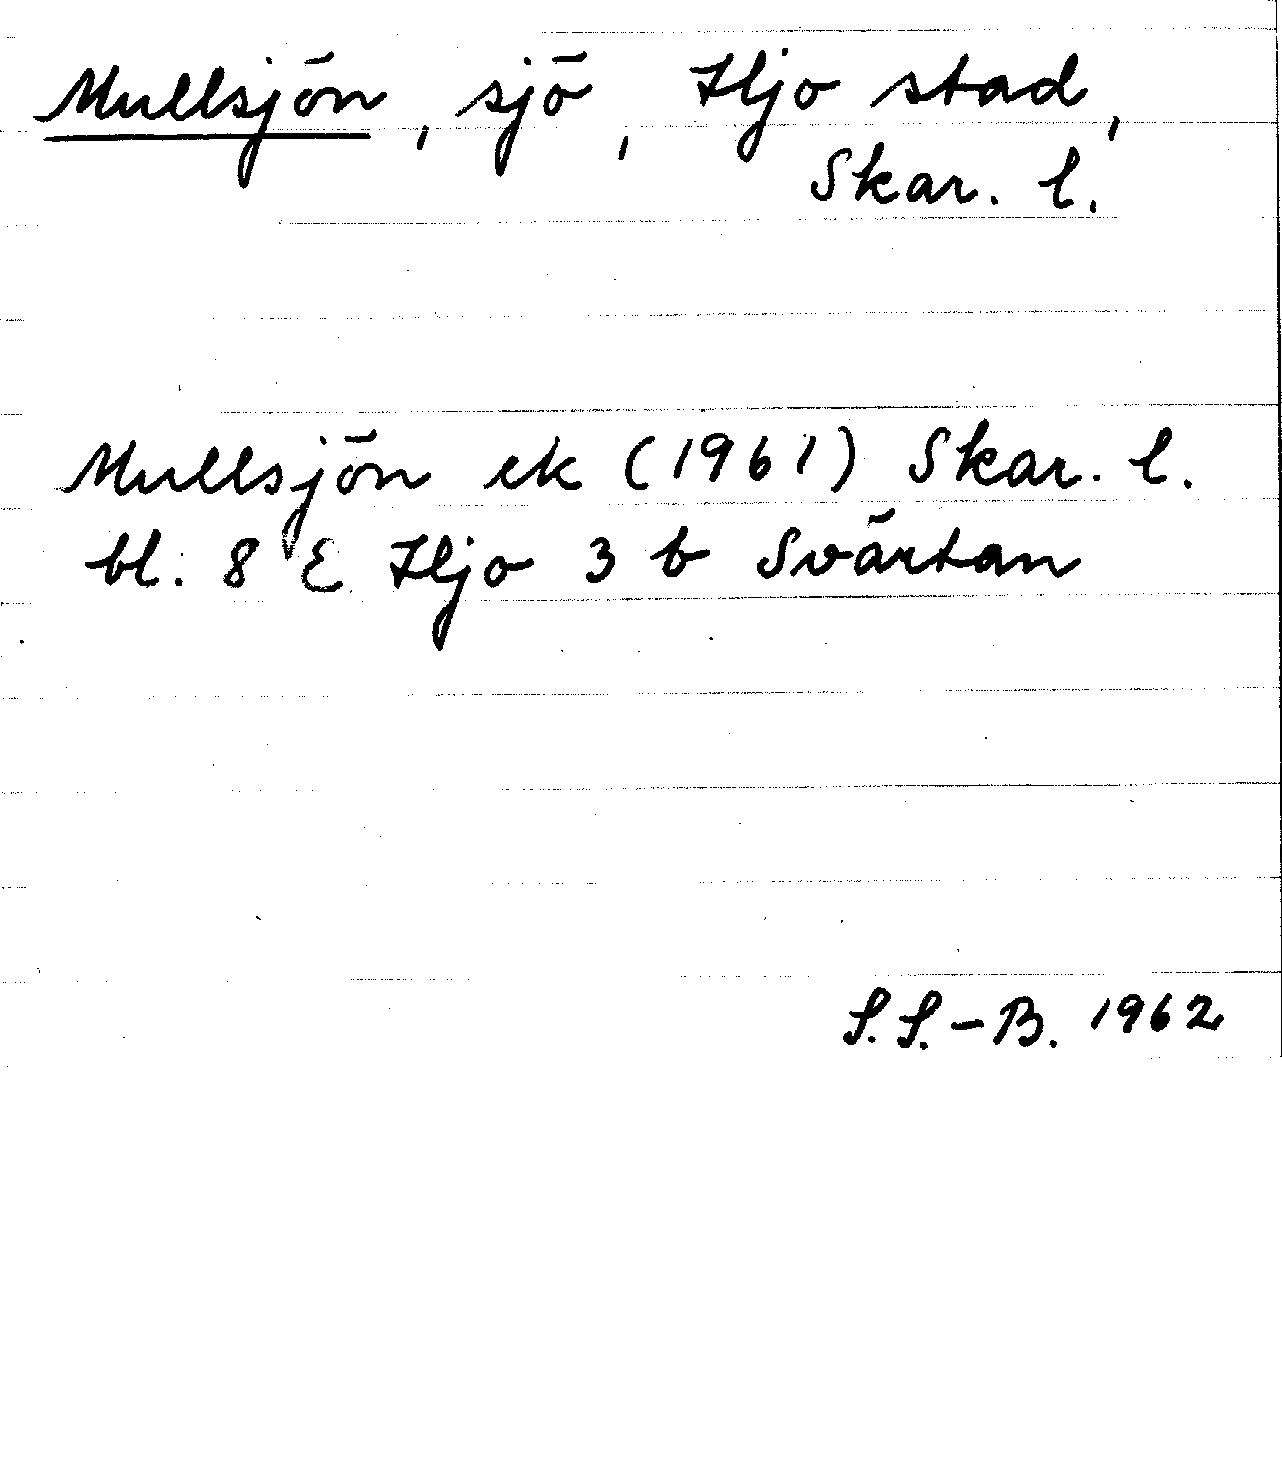 Mullsjön, sjö, Hjo stad,
Skar. l.
Mullsjön ek (1961) Skar. l.
bl. 8 E Hjo 3 b Svärtan
S. S.-B. 1962